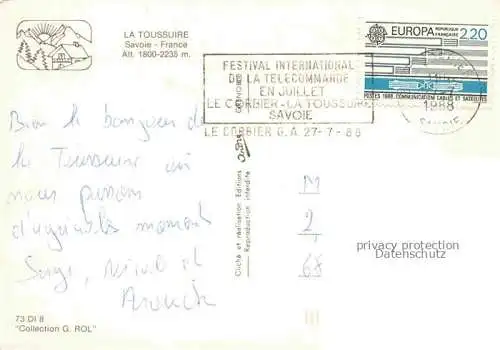 LA TOUSSUIRE
Savoie - France
Alt. 1800-2235 m.
EUROPA RÉPUBLIQUE FRANÇAISE 2,20
POSTES 1988 COMMUNICATION CABLES ET SATELLITES
FESTIVAL INTERNATIONAL
DE LA TELECOMMANDE
EN JUILLET
LE CORBIER-LA TOUSSUIRE
SAVOIE
LE CORBIER G.A 27-7-88
1988
SAVOIE
Bien le bonjour de
la Toussuire où
nous passons
d'agréables moments
Serge, et
Cliché et réalisation Editions
Reproduction interdite
GRENOBLE
M
2
68
privacy protection
Datenschutz
73 DI 8
"Collection G. ROL"